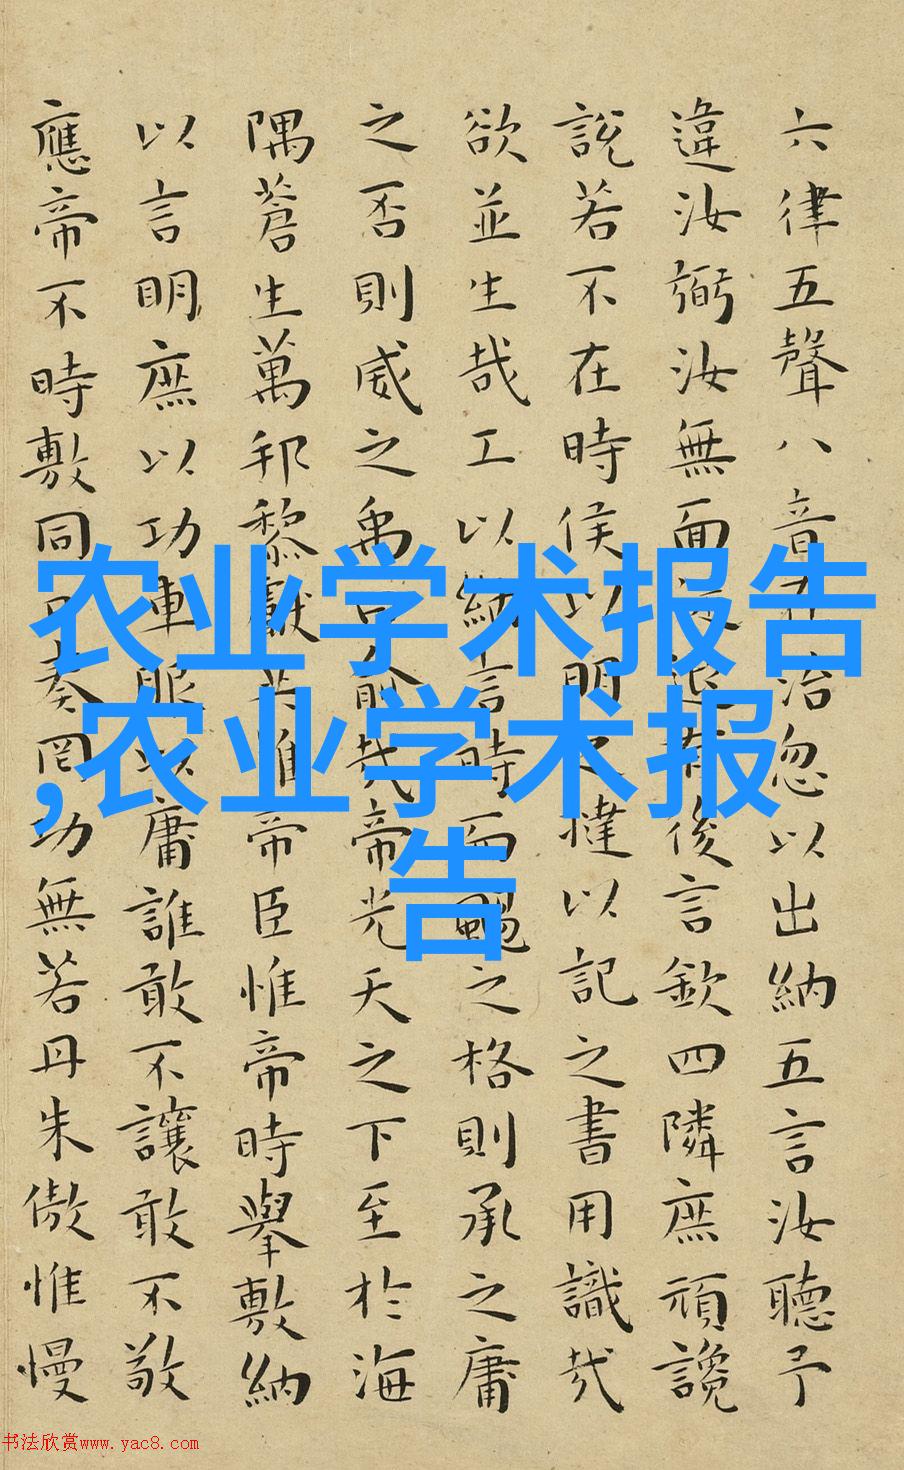 六律五聲八音在治忽以出納五言汝聽予
違汝弼汝無面從退有後言欽四隣庶頑讒
說若不在時侯以明之撻以記之書用識哉
欲並生哉工以納言時而颺之格則承之庸
之否則威之禹曰俞哉帝光天之下至於海
隅蒼生萬邦黎獻共惟帝臣惟帝時舉敷納
以言明庶以功車服以庸誰敢不讓敢不敬
應帝不時敷同日奏罔功無若丹朱傲惟慢
农业学术报告
,农业学术报
告
书法欣赏www.yac8.com